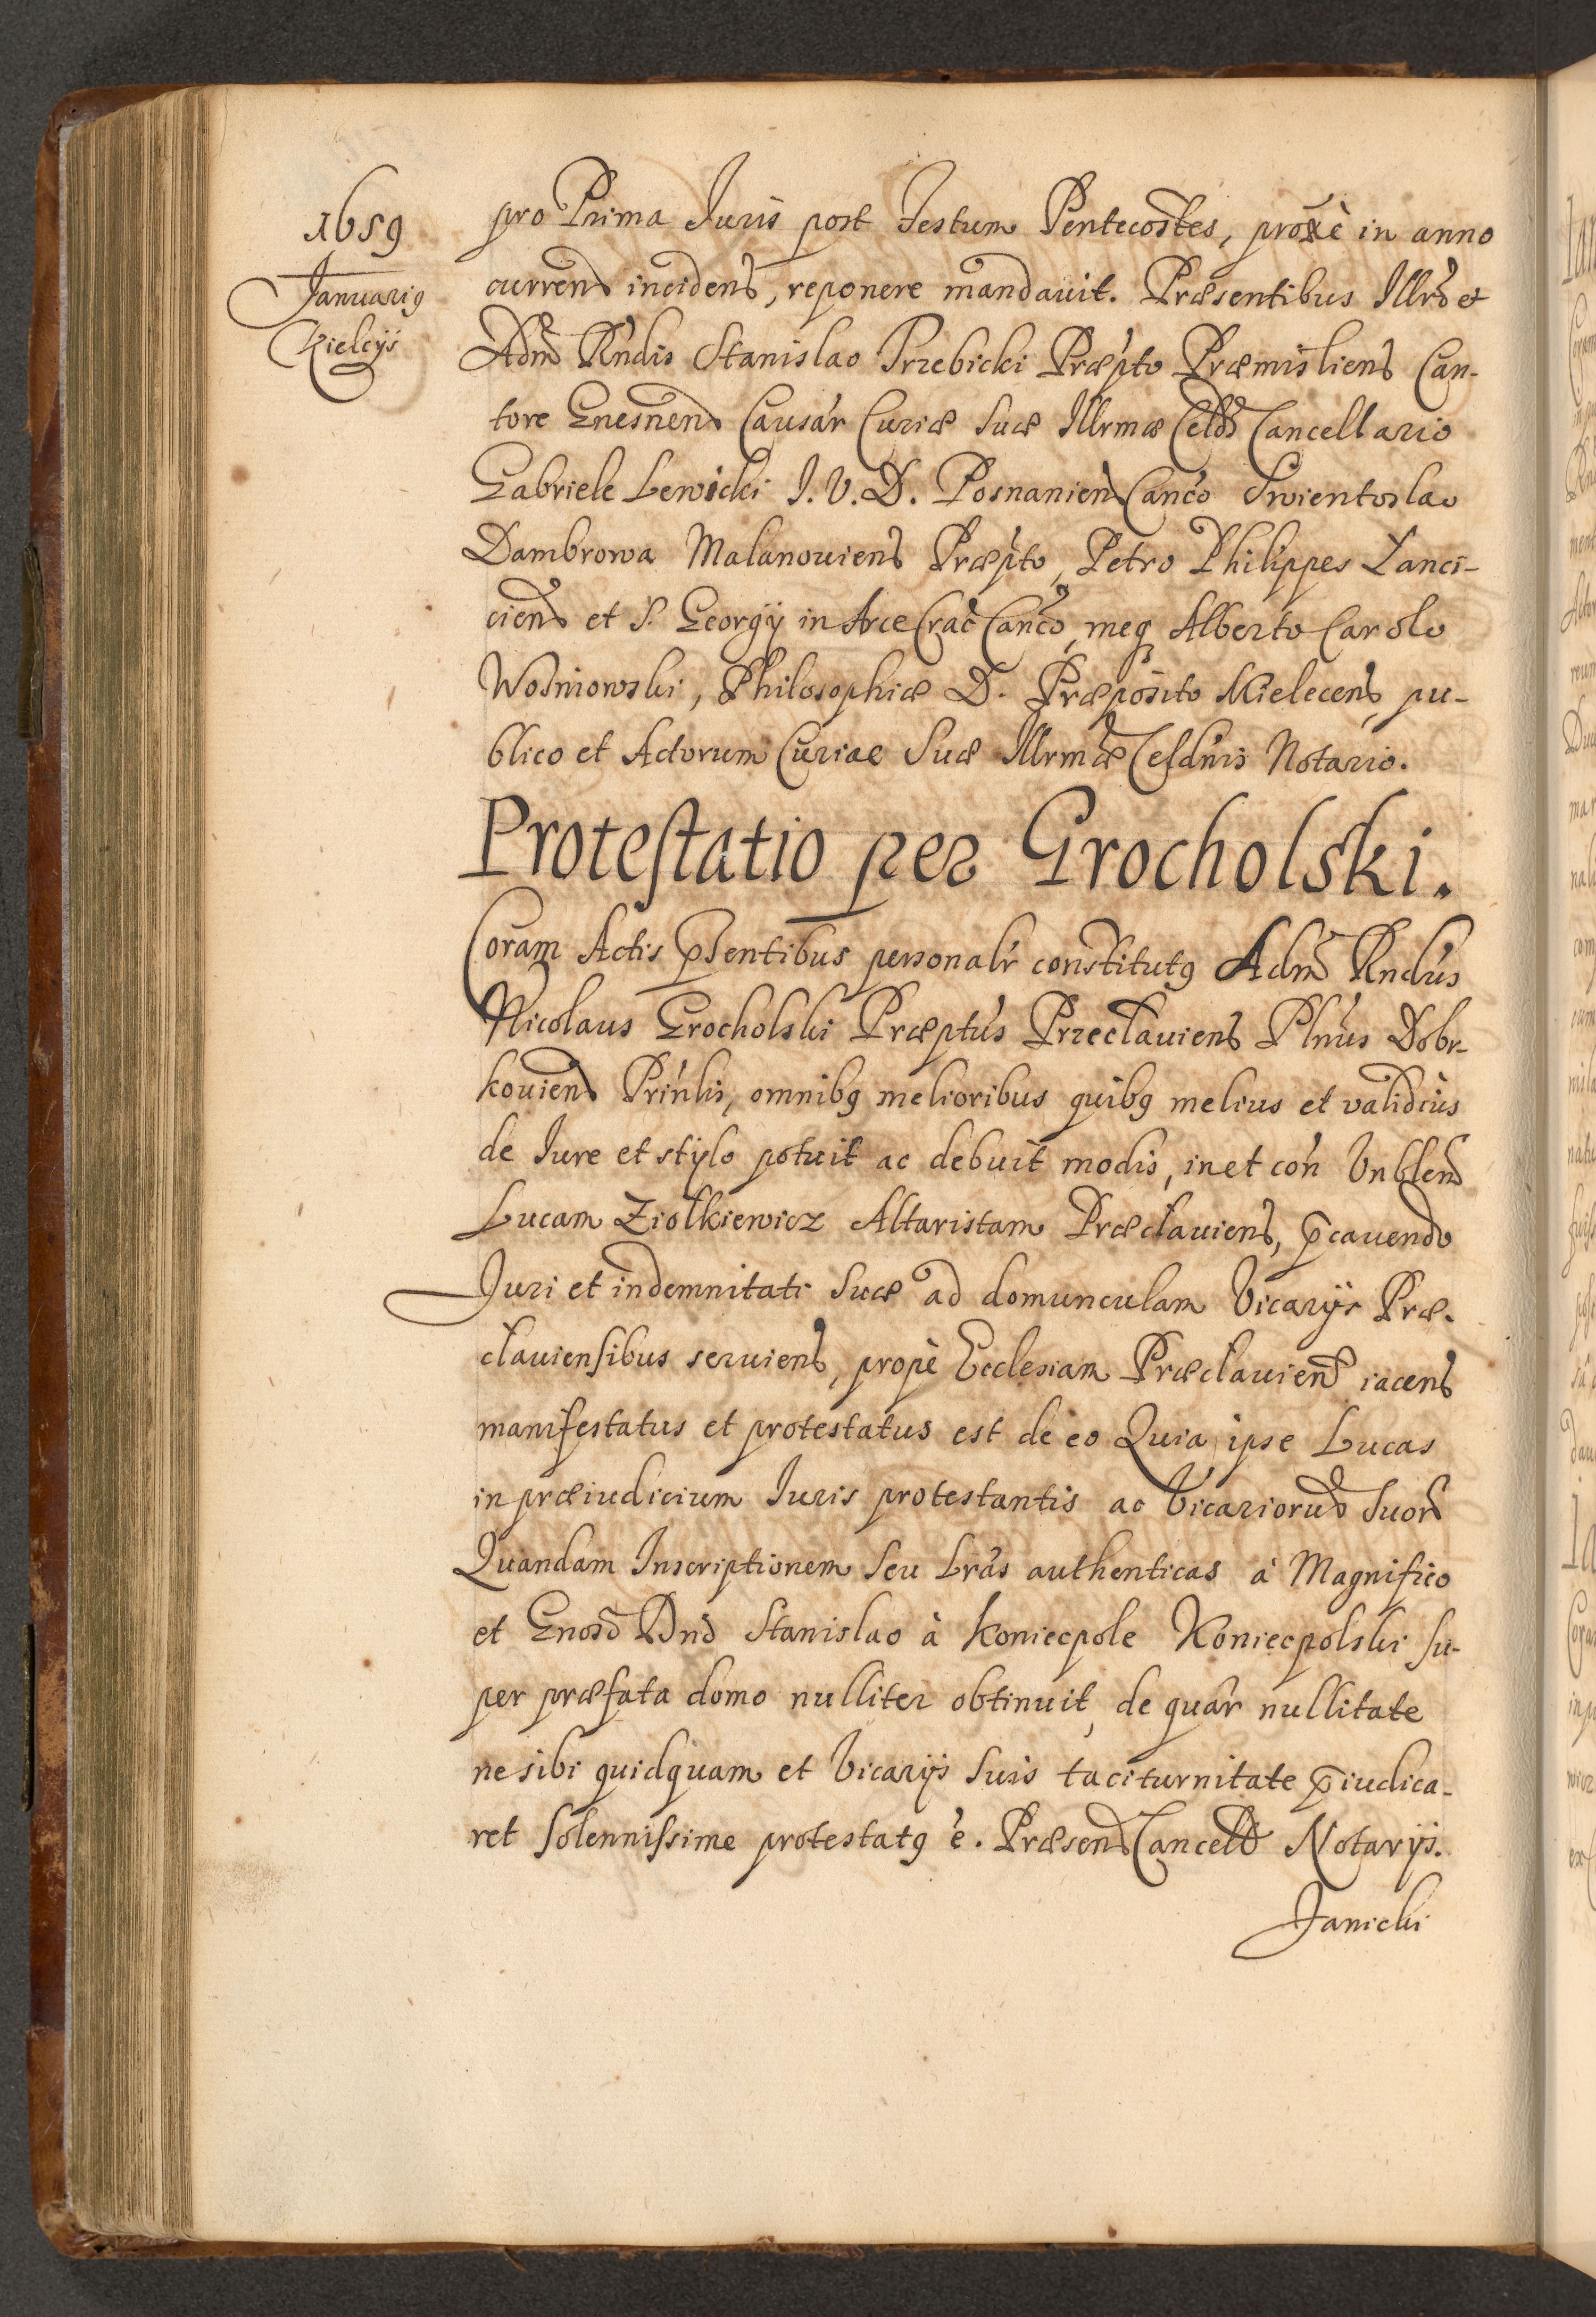 1659
Januarig
Kielcijs
pro Prima Juris post Festum Pentecostes, proxè in anno
currens incidens, reponere mandavit. Præsentibus Illrs et
Adm Rndis Stanislao Trzebicki Præpto Præmisliens Can-
tore Gnesnens Causar Curiæ suæ Illrmæ Celds Cancellario
Gabriele Lewicki J. V. D. Posnanien Canco Swientoslao
Dambrowa Malanoviens Præpto, Petro Philippes Lanci-
ciens et S. Georgij in Arce Crac Canco, meq Alberto Carolo
Wosniowski, Philosophiæ D. Præposito Mielecens, pu-
blico et Actorum Curiae Suæ Illrmæ Celsdnis Notario.
Protestatio per Grocholski.
Coram Actis psentibus personalr constitutg Adm Rndus
Nicolaus Grocholski Præptus Przeclaviens Plnus Dobr-
koviens Prinlis, omnibg melioribus quibg melius et validius
de Jure et stylo potuit ac debuit modis, in et con Vnblem
Lucam Ziolkiewicz Altaristam Præclaviens, pcavendo
Juri et indemnitati suæ ad domunculam Vicarijs Præ-
claviensibus serviens, propè Ecclesiam Præclaviens iacens
manifestatus et protestatus est de eo Quia ipse Lucas
in præiudicium Juris protestantis ac Vicariorum suor
Quandam Inscriptionem seu Lras authenticas à Magnifico
et Gnoso Dno Stanislao à Koniecpole Koniecpolski su-
per præfata domo nulliter obtinuit, de quar nullitate
ne sibi quidquam et Vicarijs suis taciturnitate piudica-
ret solennissime protestatg e. Præsens Cancell Notarijs.
Janicki